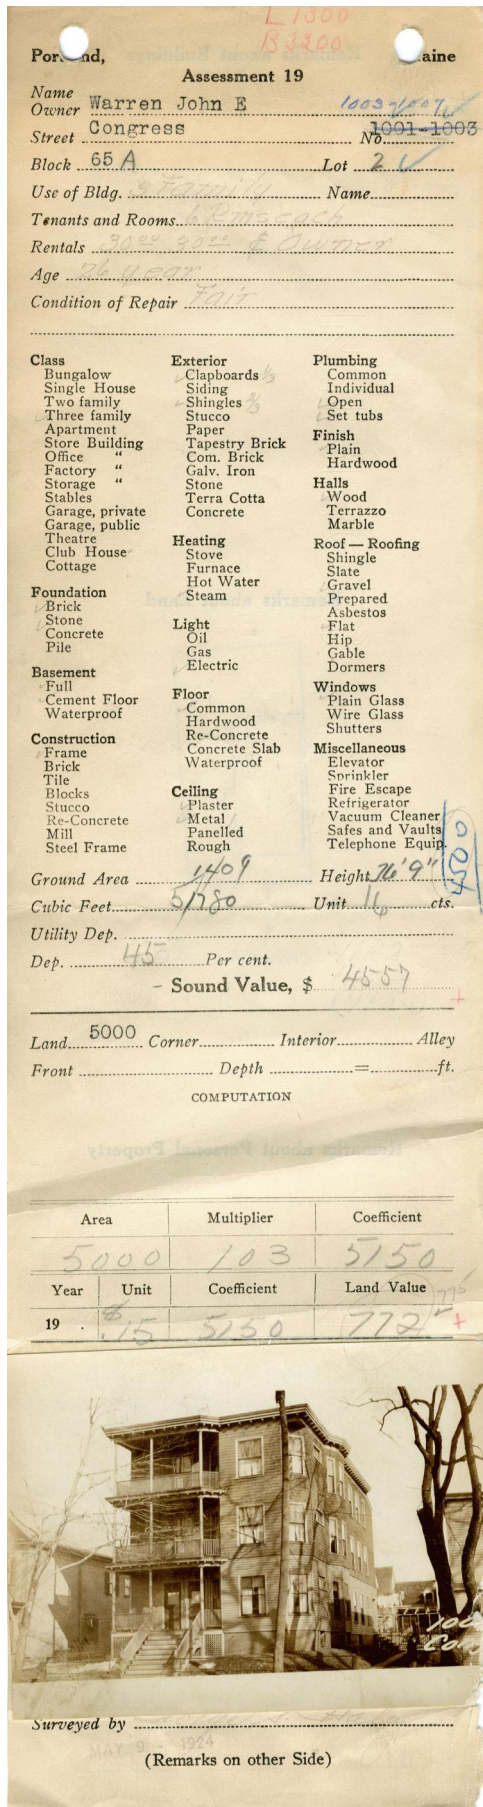 L 1300
B 3200
Por nd, aine
Assessment 19
Name
Owner Warren John E 1003-1007
Street Congress No. 1001-1003
Block 65 A Lot 2
Use of Bldg. 3 Family Name
Tenants and Rooms 6 Rms each
Rentals 30 00 30 00 & Owner
Age 26 year
Condition of Repair Fair
Class
Bungalow
Single House
Two family
Three family
Apartment
Store Building
Office "
Factory "
Storage "
Stables
Garage, private
Garage, public
Theatre
Club House
Cottage
Foundation
Brick
Stone
Concrete
Pile
Basement
Full
Cement Floor
Waterproof
Construction
Frame
Brick
Tile
Blocks
Stucco
Re-Concrete
Mill
Steel Frame
Exterior
Clapboards 1/3
Siding
Shingles 2/3
Stucco
Paper
Tapestry Brick
Com. Brick
Galv. Iron
Stone
Terra Cotta
Concrete
Heating
Stove
Furnace
Hot Water
Steam
Light
Oil
Gas
Electric
Floor
Common
Hardwood
Re-Concrete
Concrete Slab
Waterproof
Ceiling
Plaster
Metal
Panelled
Rough
Plumbing
Common
Individual
Open
Set tubs
Finish
Plain
Hardwood
Halls
Wood
Terrazzo
Marble
Roof — Roofing
Shingle
Slate
Gravel
Prepared
Asbestos
Flat
Hip
Gable
Dormers
Windows
Plain Glass
Wire Glass
Shutters
Miscellaneous
Elevator
Sprinkler
Fire Escape
Refrigerator
Vacuum Cleaner
Safes and Vaults
Telephone Equip.
Ground Area 1409 Height 36' 9"
Cubic Feet 51780 Unit 16 cts.
Utility Dep.
Dep. 45 Per cent.
Sound Value, $ 4557
Land 5000 Corner Interior Alley
Front Depth = ft.
COMPUTATION
Area Multiplier Coefficient
5000 103 5150
Year Unit Coefficient Land Value
775
19 . $.15 5150 772
Surveyed by
MAY 9 - 1924
(Remarks on other Side)